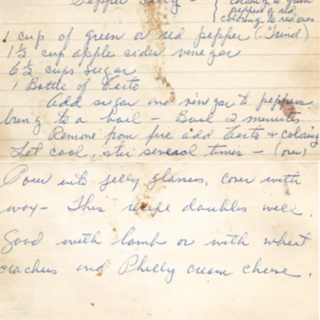 Pepper Jelly - { coloring to green
peppers or red
coloring to red ones
1 cup of green or red pepper (Ground)
1½ cup apple cider vinegar
6½ cups sugar
1 Bottle of Certo
Add sugar and vinegar to peppers
bring to a boil - Boil 2 minutes
Remove from fire add Certo & coloring
Let cool, stir several times - (over)
Pour into jelly glasses, cover with
wax - This recipe doubles well.
Good with lamb or with wheat
crackers and Philly cream cheese.